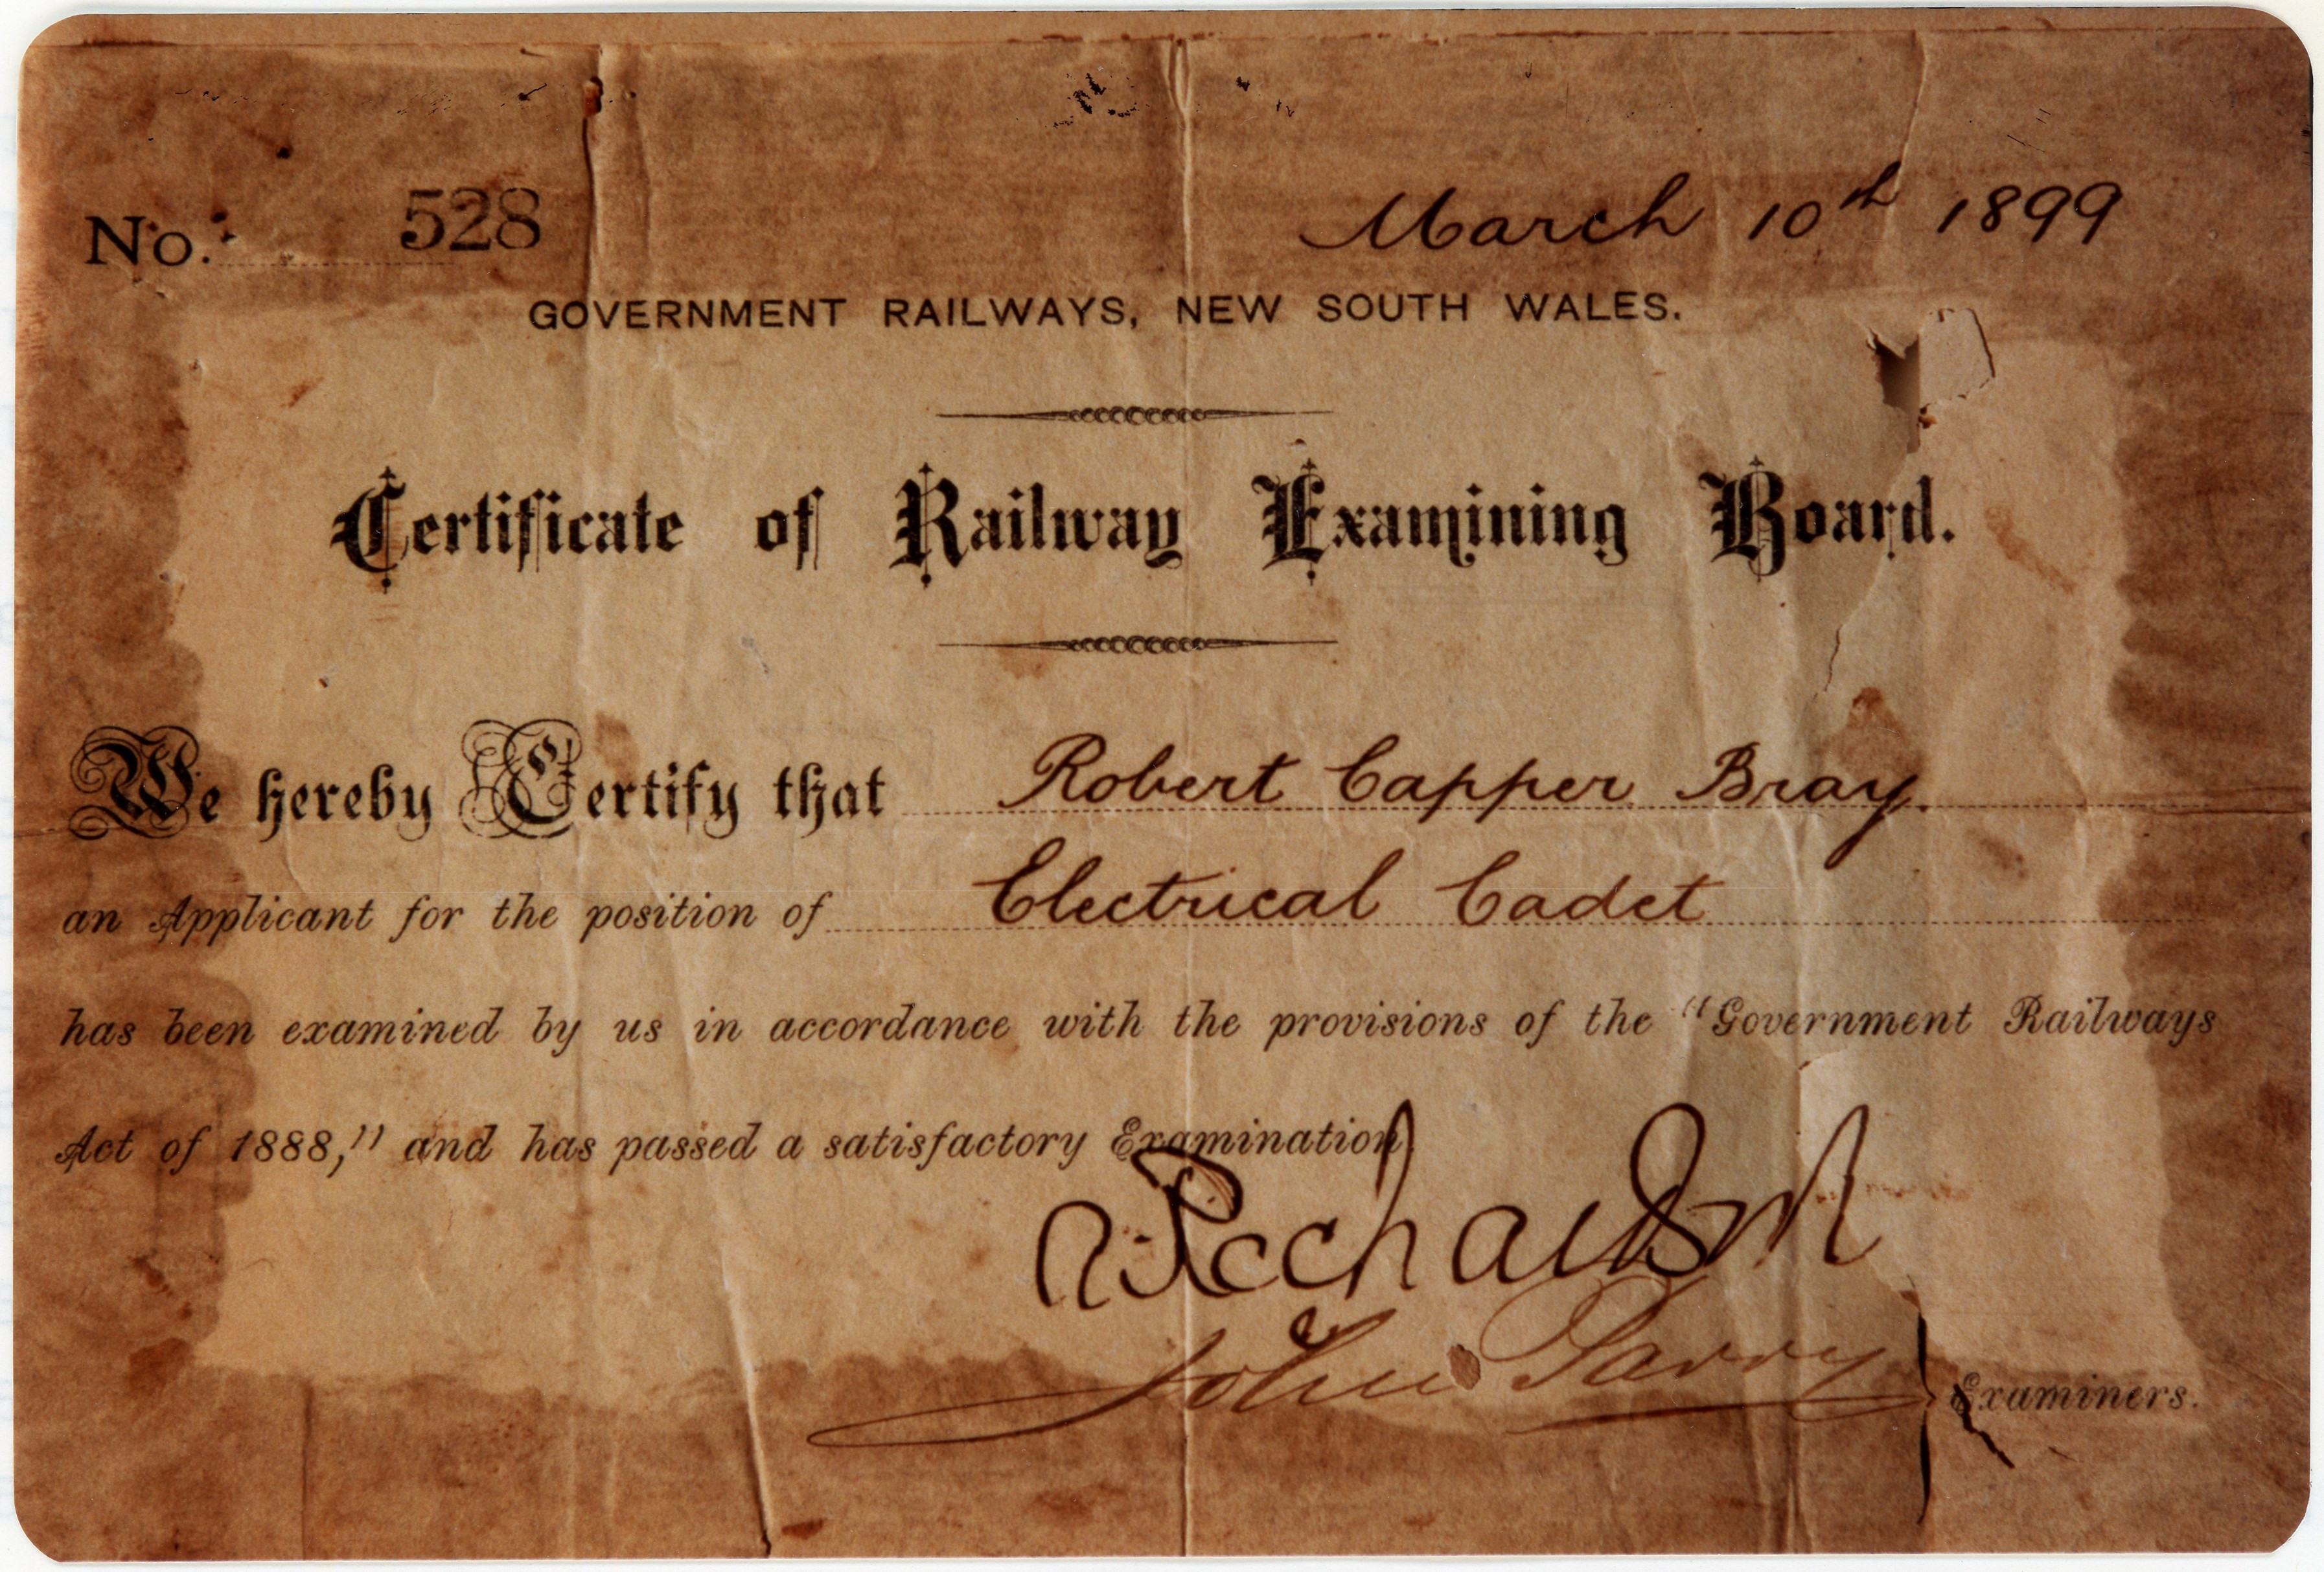 No. 528
March 10th 1899
GOVERNMENT RAILWAYS, NEW SOUTH WALES.
Certificate of Railway Examining Board.
We hereby Certify that Robert Capper Bray.
an Applicant for the position of Electrical Cadet
has been examined by us in accordance with the provisions of the "Government Railways
Act of 1888," and has passed a satisfactory Examination
A Richardson
John Parry
Examiners.